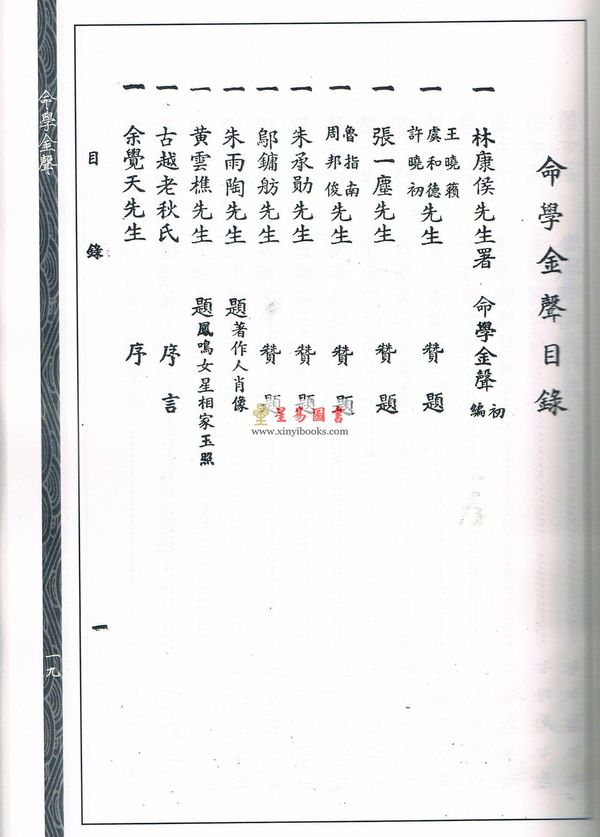 命學金聲目錄
一 林康侯先生署 命學金聲初編
一 王曉籟 虞和德 許曉初 先生 贊題
一 張一塵先生 贊題
一 魯指南 周邦俊 先生 贊題
一 朱承勛先生 贊題
一 鄔鏞舫先生 贊題
一 朱雨陶先生 題著作人肖像
一 黃雲樵先生 題鳳鳴女星相家玉照
一 古越老秋氏 序言
一 余覺天先生 序
目錄
一
命學金聲
一九
星易圖書
www.xinyibooks.com